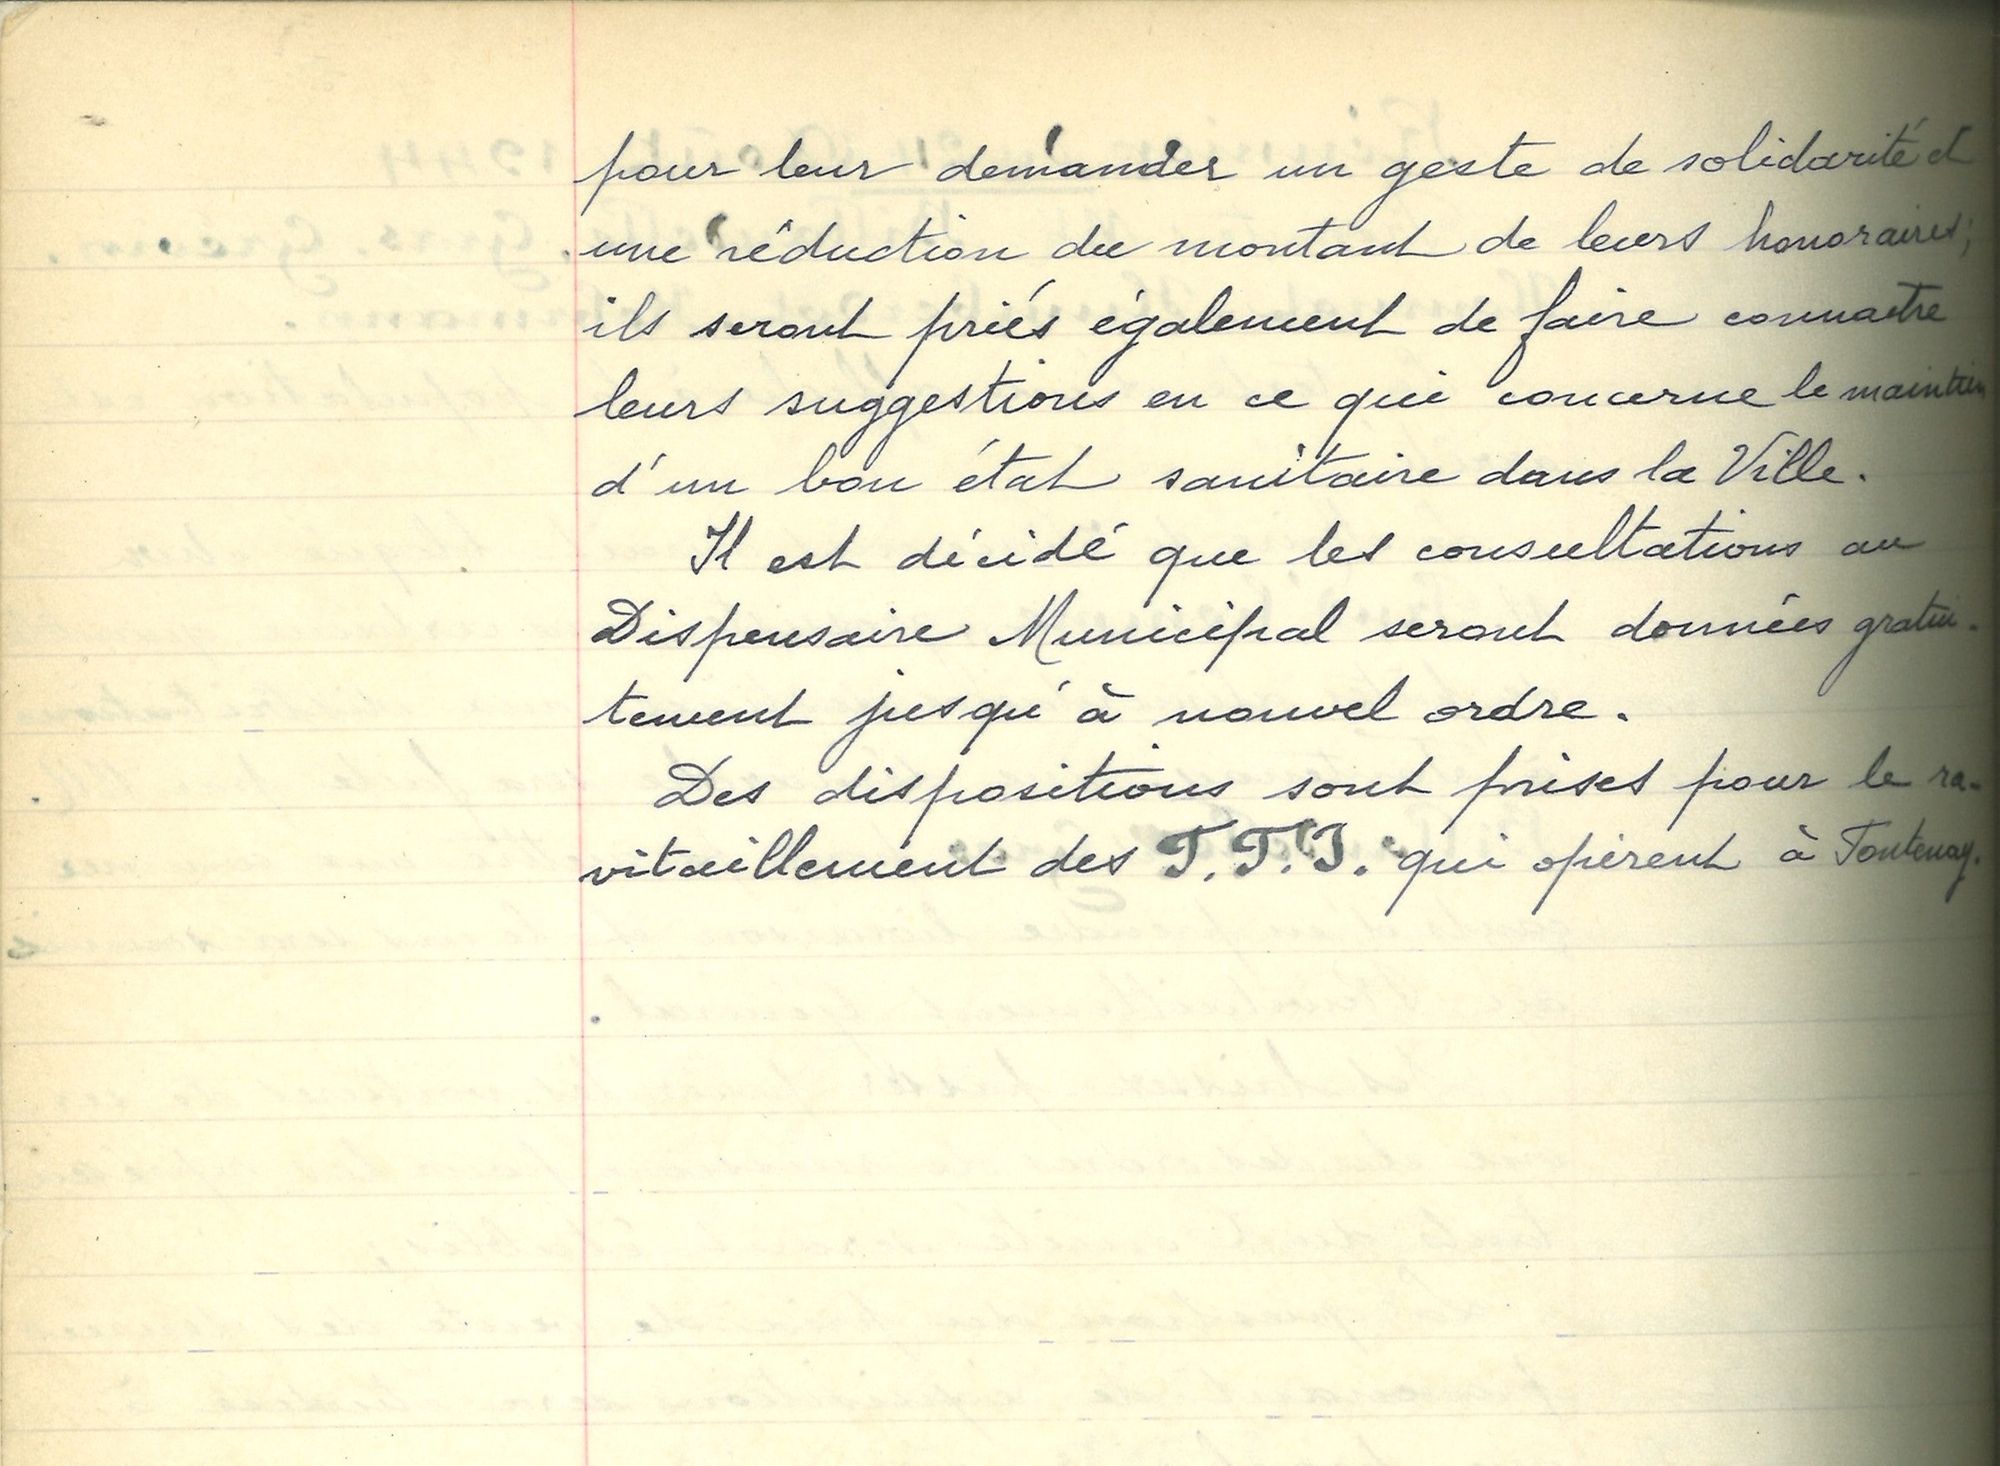 pour leur demander un geste de solidarité et
une réduction du montant de leurs honoraires;
ils seront priés également de faire connaitre
leurs suggestions en ce qui concerne le maintien
d'un bon état sanitaire dans la Ville.
Il est décidé que les consultations au
Dispensaire Municipal seront données gratui-
tement jusqu'à nouvel ordre.
Des dispositions sont prises pour le ra-
vitaillement des F.F.I. qui opèrent à Fontenay.